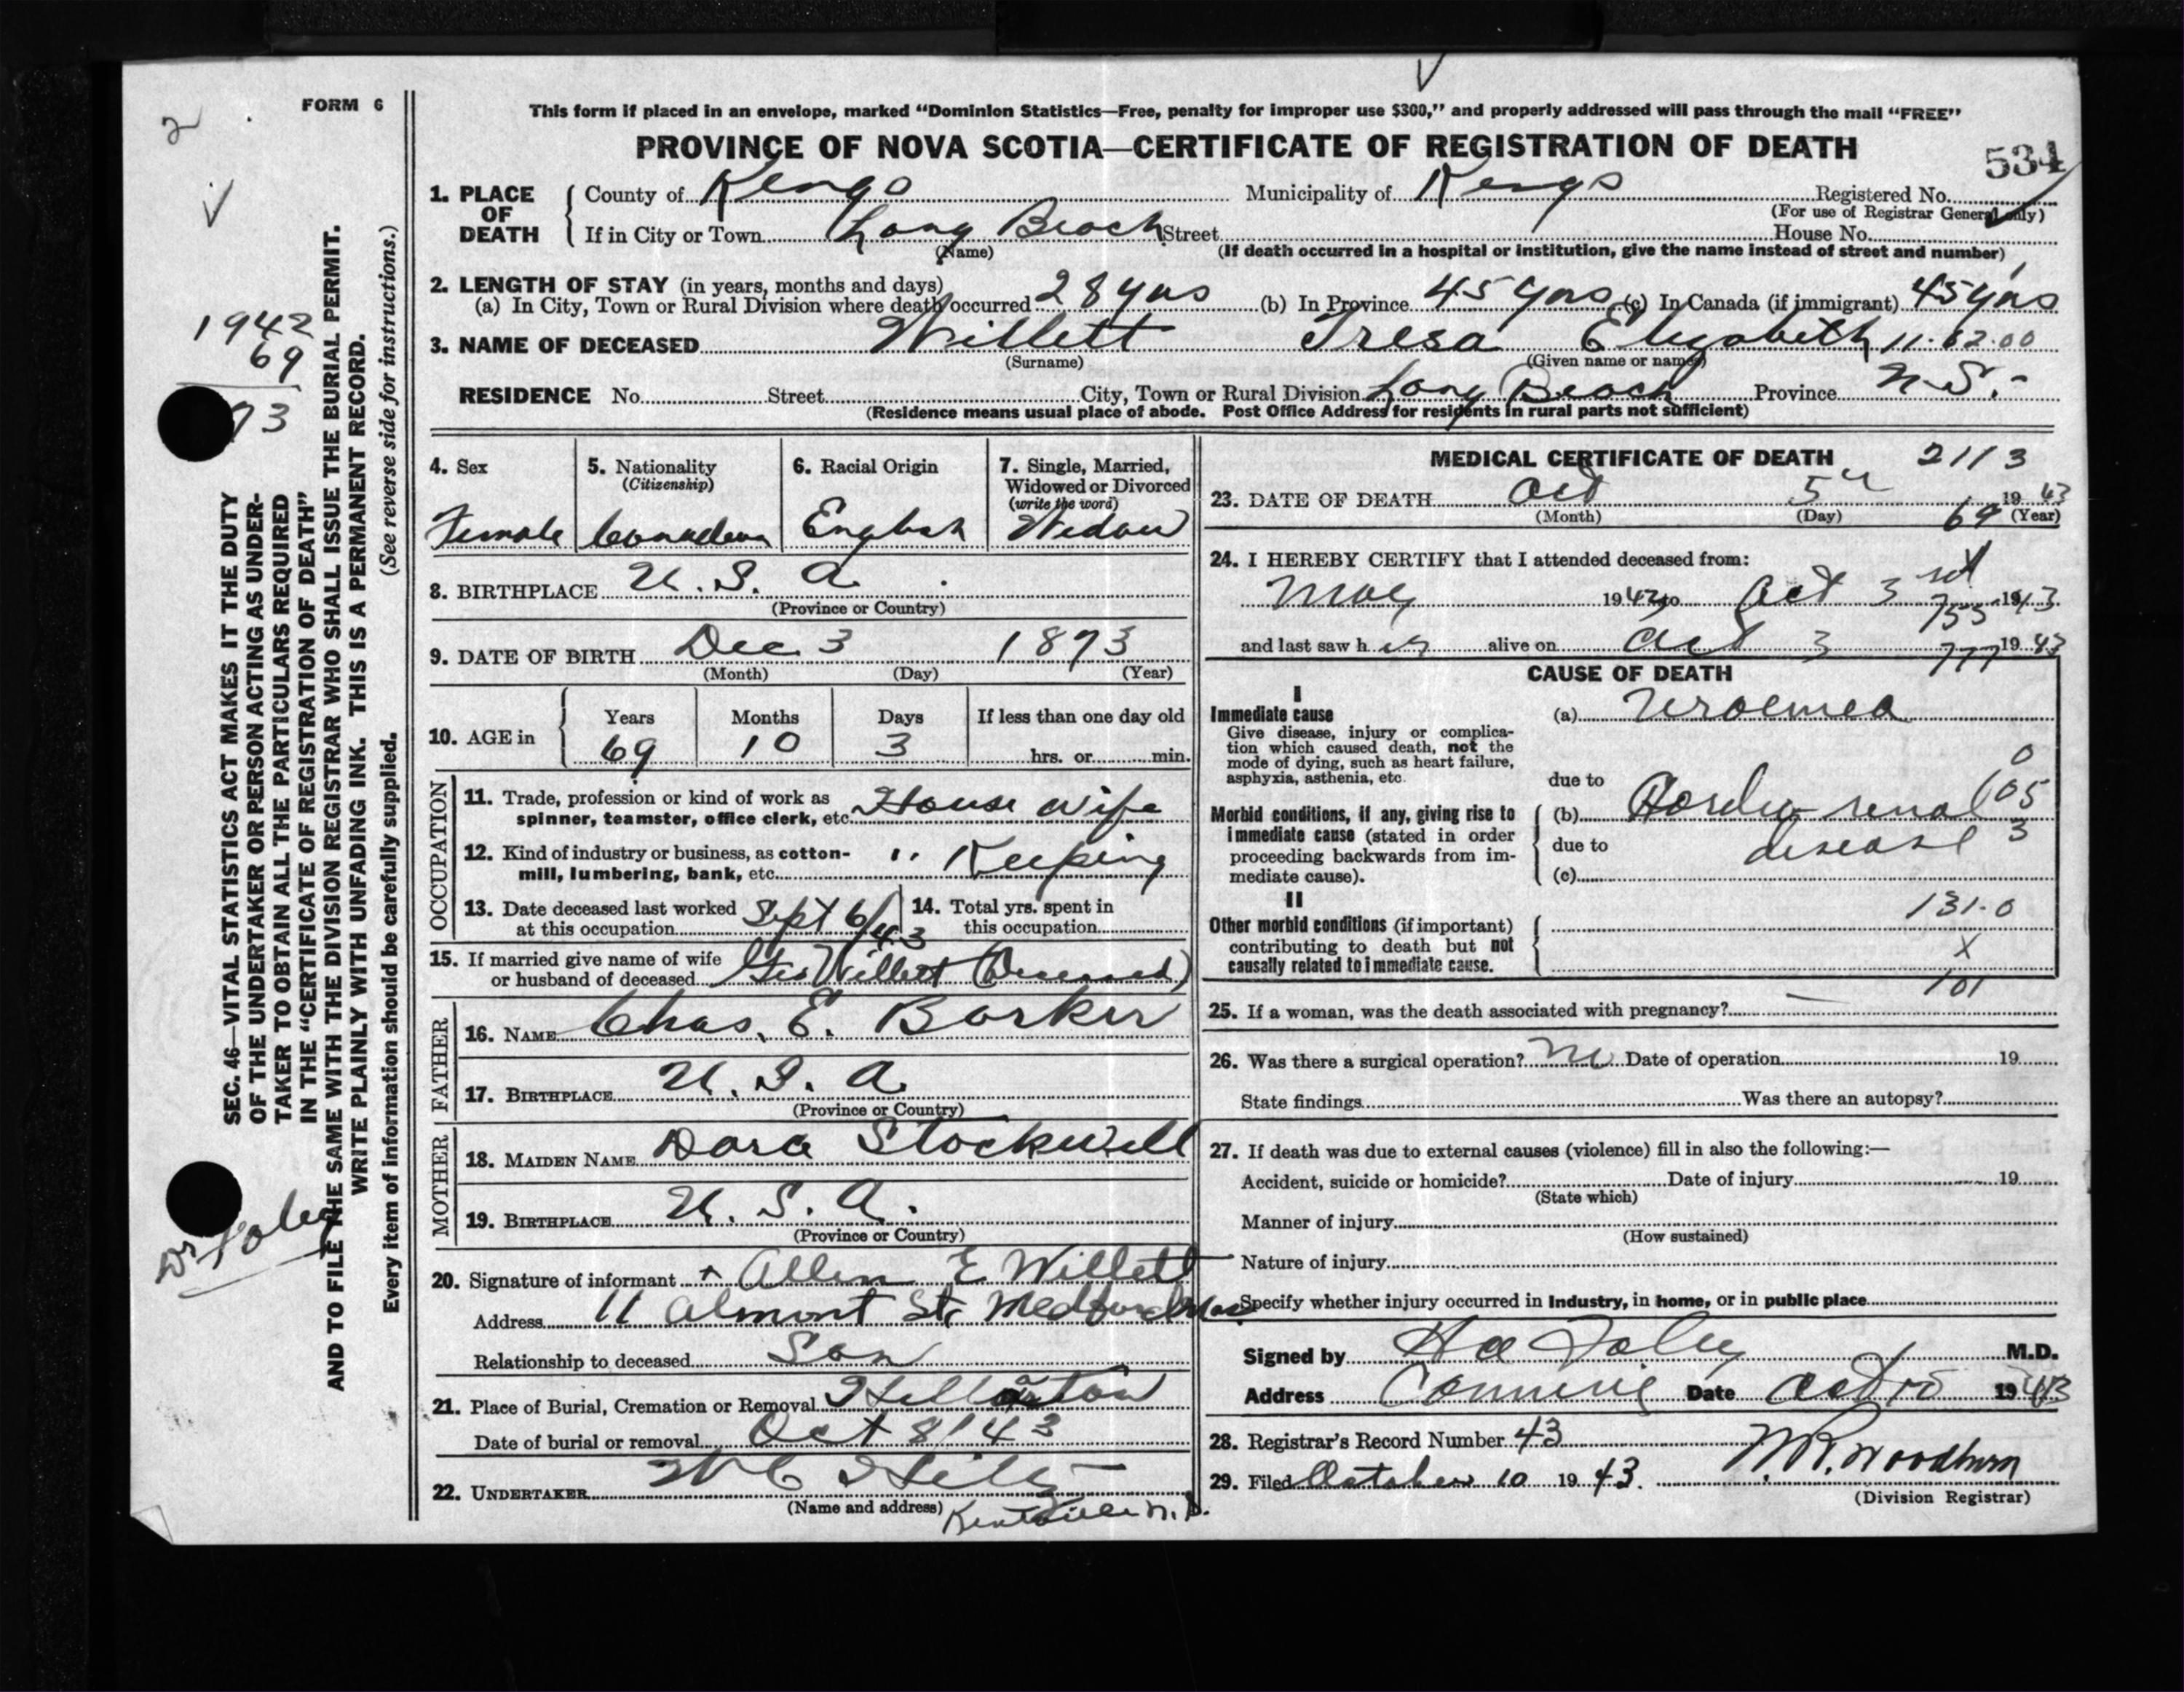 FORM 6
This form if placed in an envelope, marked “Dominion Statistics—Free, penalty for improper use $300,” and properly addressed will pass through the mail “FREE”
PROVINCE OF NOVA SCOTIA—CERTIFICATE OF REGISTRATION OF DEATH
534
1. PLACE OF DEATH
County of Kings Municipality of Kings Registered No.
(For use of Registrar General only)
If in City or Town Long Beach Street House No.
(Name) (If death occurred in a hospital or institution, give the name instead of street and number)
2. LENGTH OF STAY (in years, months and days)
(a) In City, Town or Rural Division where death occurred 28 yrs (b) In Province 45 yrs (c) In Canada (if immigrant) 45 yrs
3. NAME OF DECEASED Willett Tresa Elizabeth 11.62.00
(Surname) (Given name or names)
RESIDENCE No. Street City, Town or Rural Division Long Beach Province N.S.
(Residence means usual place of abode. Post Office Address for residents in rural parts not sufficient)
4. Sex
Female
5. Nationality
(Citizenship)
Canadian
6. Racial Origin
English
7. Single, Married,
Widowed or Divorced
(write the word)
Widow
8. BIRTHPLACE U.S.A.
(Province or Country)
9. DATE OF BIRTH Dec 3 1873
(Month) (Day) (Year)
10. AGE in
Years Months Days If less than one day old
69 10 3 hrs. or min.
OCCUPATION
11. Trade, profession or kind of work as
spinner, teamster, office clerk, etc. House wife
12. Kind of industry or business, as cotton-
mill, lumbering, bank, etc. " Keeping
13. Date deceased last worked
at this occupation Sept 6/43
14. Total yrs. spent in
this occupation
15. If married give name of wife
or husband of deceased Geo Willett (Deceased)
FATHER
16. NAME Chas. E. Barker
17. BIRTHPLACE U.S.A.
(Province or Country)
MOTHER
18. MAIDEN NAME Dora Stockwell
19. BIRTHPLACE U.S.A.
(Province or Country)
20. Signature of informant + Allen E Willett
Address 11 Almont St, Medford Mas
Relationship to deceased Son
21. Place of Burial, Cremation or Removal Hillaton
Date of burial or removal Oct 8/43
22. UNDERTAKER W C Hiltz
(Name and address) Kentville N.S.
MEDICAL CERTIFICATE OF DEATH 2113
23. DATE OF DEATH Oct 5th 1943
(Month) (Day) 69 (Year)
24. I HEREBY CERTIFY that I attended deceased from:
May 1943 to Oct 3rd 1943
753
and last saw her alive on Oct 3 1943
777
CAUSE OF DEATH
I
Immediate cause
Give disease, injury or complica-
tion which caused death, not the
mode of dying, such as heart failure,
asphyxia, asthenia, etc.
(a) Uraemea
0
due to
Morbid conditions, if any, giving rise to
immediate cause (stated in order
proceeding backwards from im-
mediate cause).
(b) renal 105
due to disease 3
(c)
II
131.0
Other morbid conditions (if important)
contributing to death but not
causally related to immediate cause.
X
101
25. If a woman, was the death associated with pregnancy? —
26. Was there a surgical operation? no Date of operation 19
State findings Was there an autopsy?
27. If death was due to external causes (violence) fill in also the following:—
Accident, suicide or homicide? Date of injury 19
(State which)
Manner of injury
(How sustained)
Nature of injury
Specify whether injury occurred in Industry, in home, or in public place
Signed by Foley M.D.
Address Canning Date Oct 1943
28. Registrar's Record Number 43
29. Filed October 10 1943. Woodburn
(Division Registrar)
2
1942
69
73
Dr Foley
SEC. 46—VITAL STATISTICS ACT MAKES IT THE DUTY
OF THE UNDERTAKER OR PERSON ACTING AS UNDER-
TAKER TO OBTAIN ALL THE PARTICULARS REQUIRED
IN THE “CERTIFICATE OF REGISTRATION OF DEATH”
AND TO FILE THE SAME WITH THE DIVISION REGISTRAR WHO SHALL ISSUE THE BURIAL PERMIT.
WRITE PLAINLY WITH UNFADING INK. THIS IS A PERMANENT RECORD.
Every item of information should be carefully supplied. (See reverse side for instructions.)